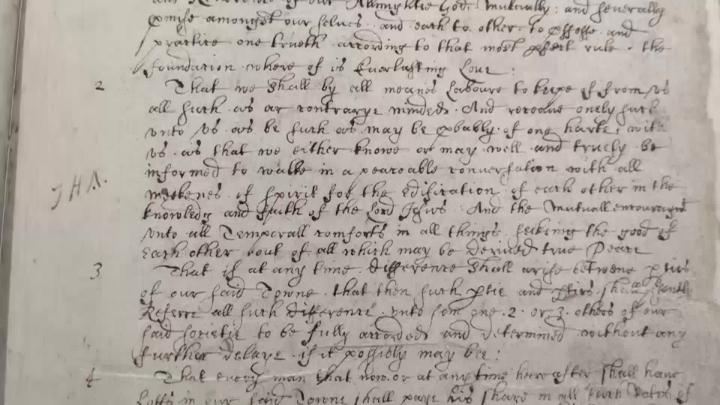 of our Allmightie God: mutually: and severally
pmise amongst our selves. and each to other. to pffesse and
practice one trueth according to that most pfect rule. the
foundation where of is Everlasting Love:
2 That we shall by all meanes Laboure to keepe of from vs
all such. as ar contrarye minded. And receaue onely such
vnto vs. as be such as may be pbably of one harte, with
vs. as that we either knowe or may well and truely be
informed to walke in a peaceable conversation with all
J H A.
meekenes of spirit for the edification of each other in the
knowledg and faith of the Lord Jesus. And the mutuall encouragmt
vnto all Temporall comforts in all things. seeking the good of
each other. out of all which may be derived true Peace
3 That if at any time difference shall arise betwene pties
of our said Towne. that then such ptie and pties shall
Referre all such difference. vnto som one. 2. or 3. others of our
said societie to be fully accorded and determined. without any
further delaye. if it possiblely may be:
4 That every man that now. or at any time heere after shall have
Lotts in our said Towne shall paye his share in all such Rates of